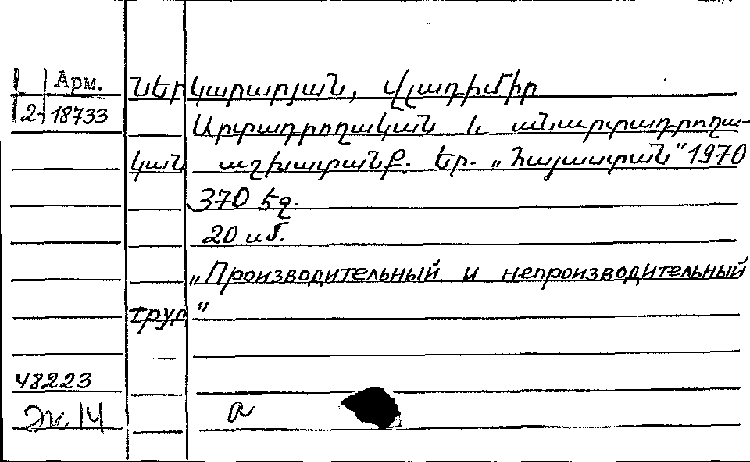 Арм.
Ներկարարյան, Վլադիմիր
2-18733
Արտադրողական և անարտադրողա-
կան աշխատանք. Եր. „Հայաստան“ 1970
370 էջ.
20 սմ.
„Производительный и непроизводительный
труд“
48223
Эк. 14
а